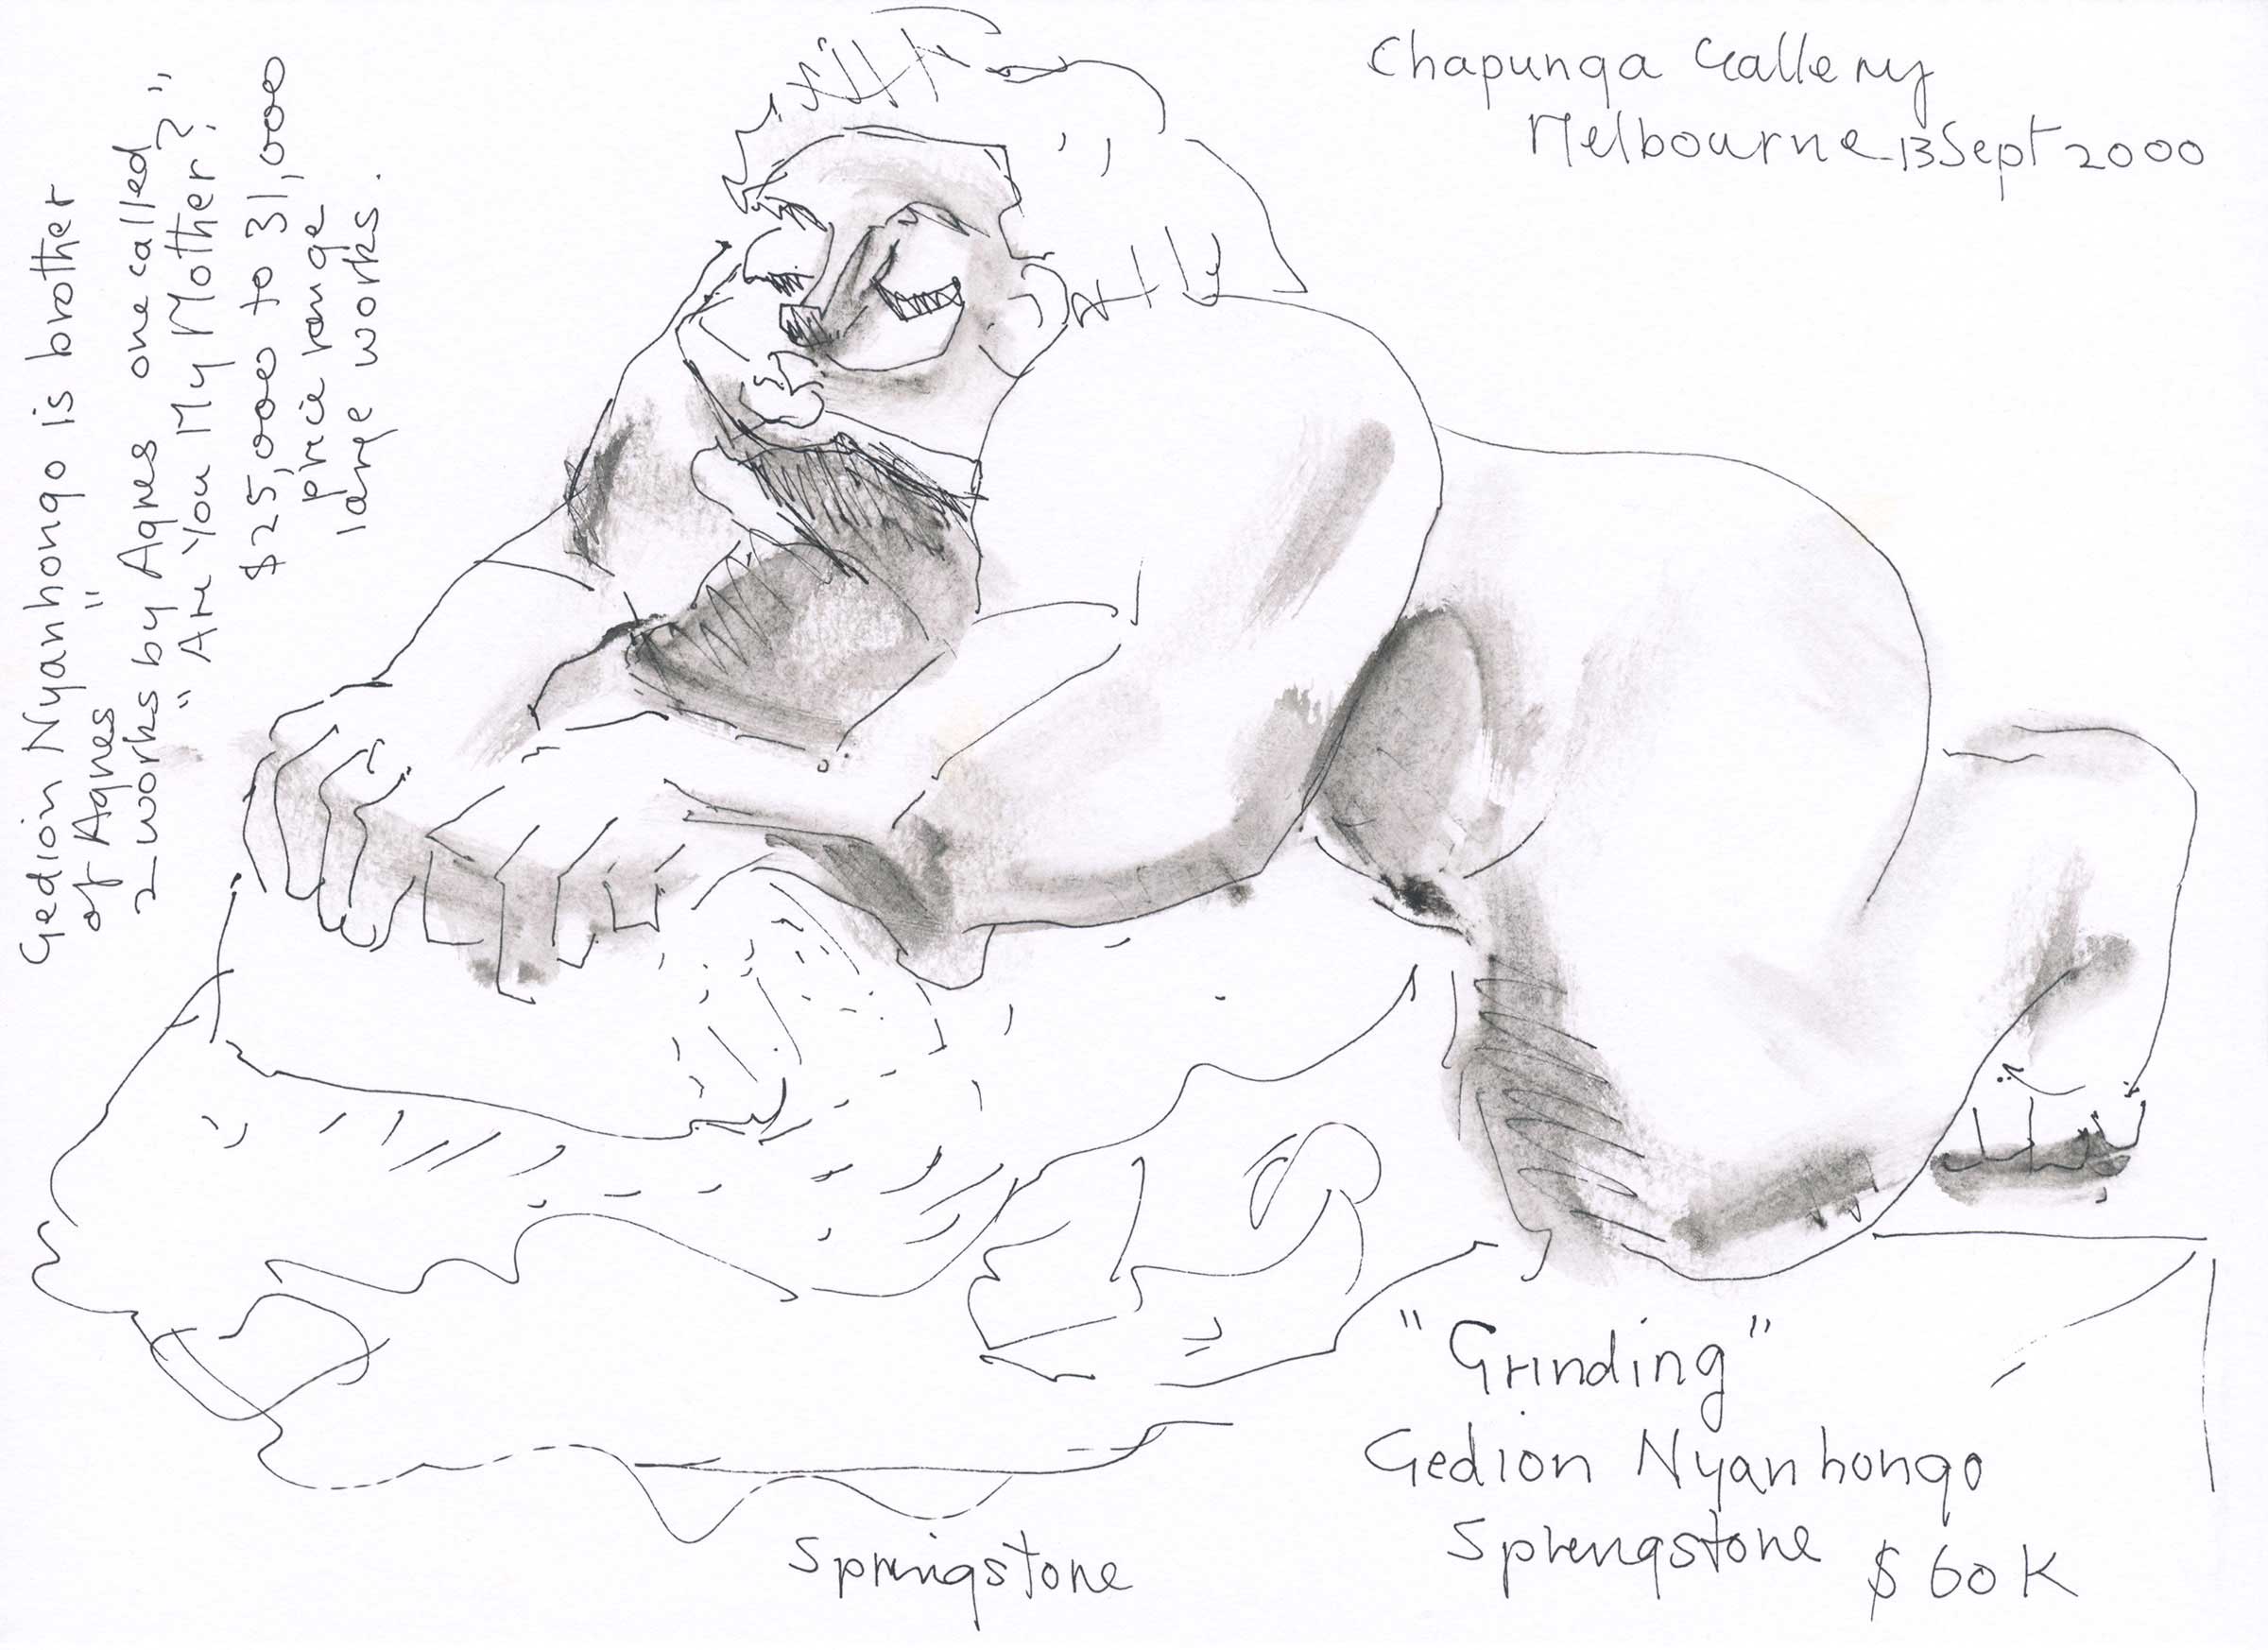 Chapunga Gallery
Melbourne 13 Sept 2000
Gedion Nyanhongo is brother
of Agnes "
2 works by Agnes one called
"Are You My Mother?"
$25,000 to 31,000
price range
large works.
"Grinding"
Gedion Nyanhongo
Springstone $60K
Springstone